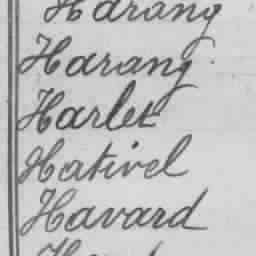 Harang
Harang
Harlet
Hativel
Havard